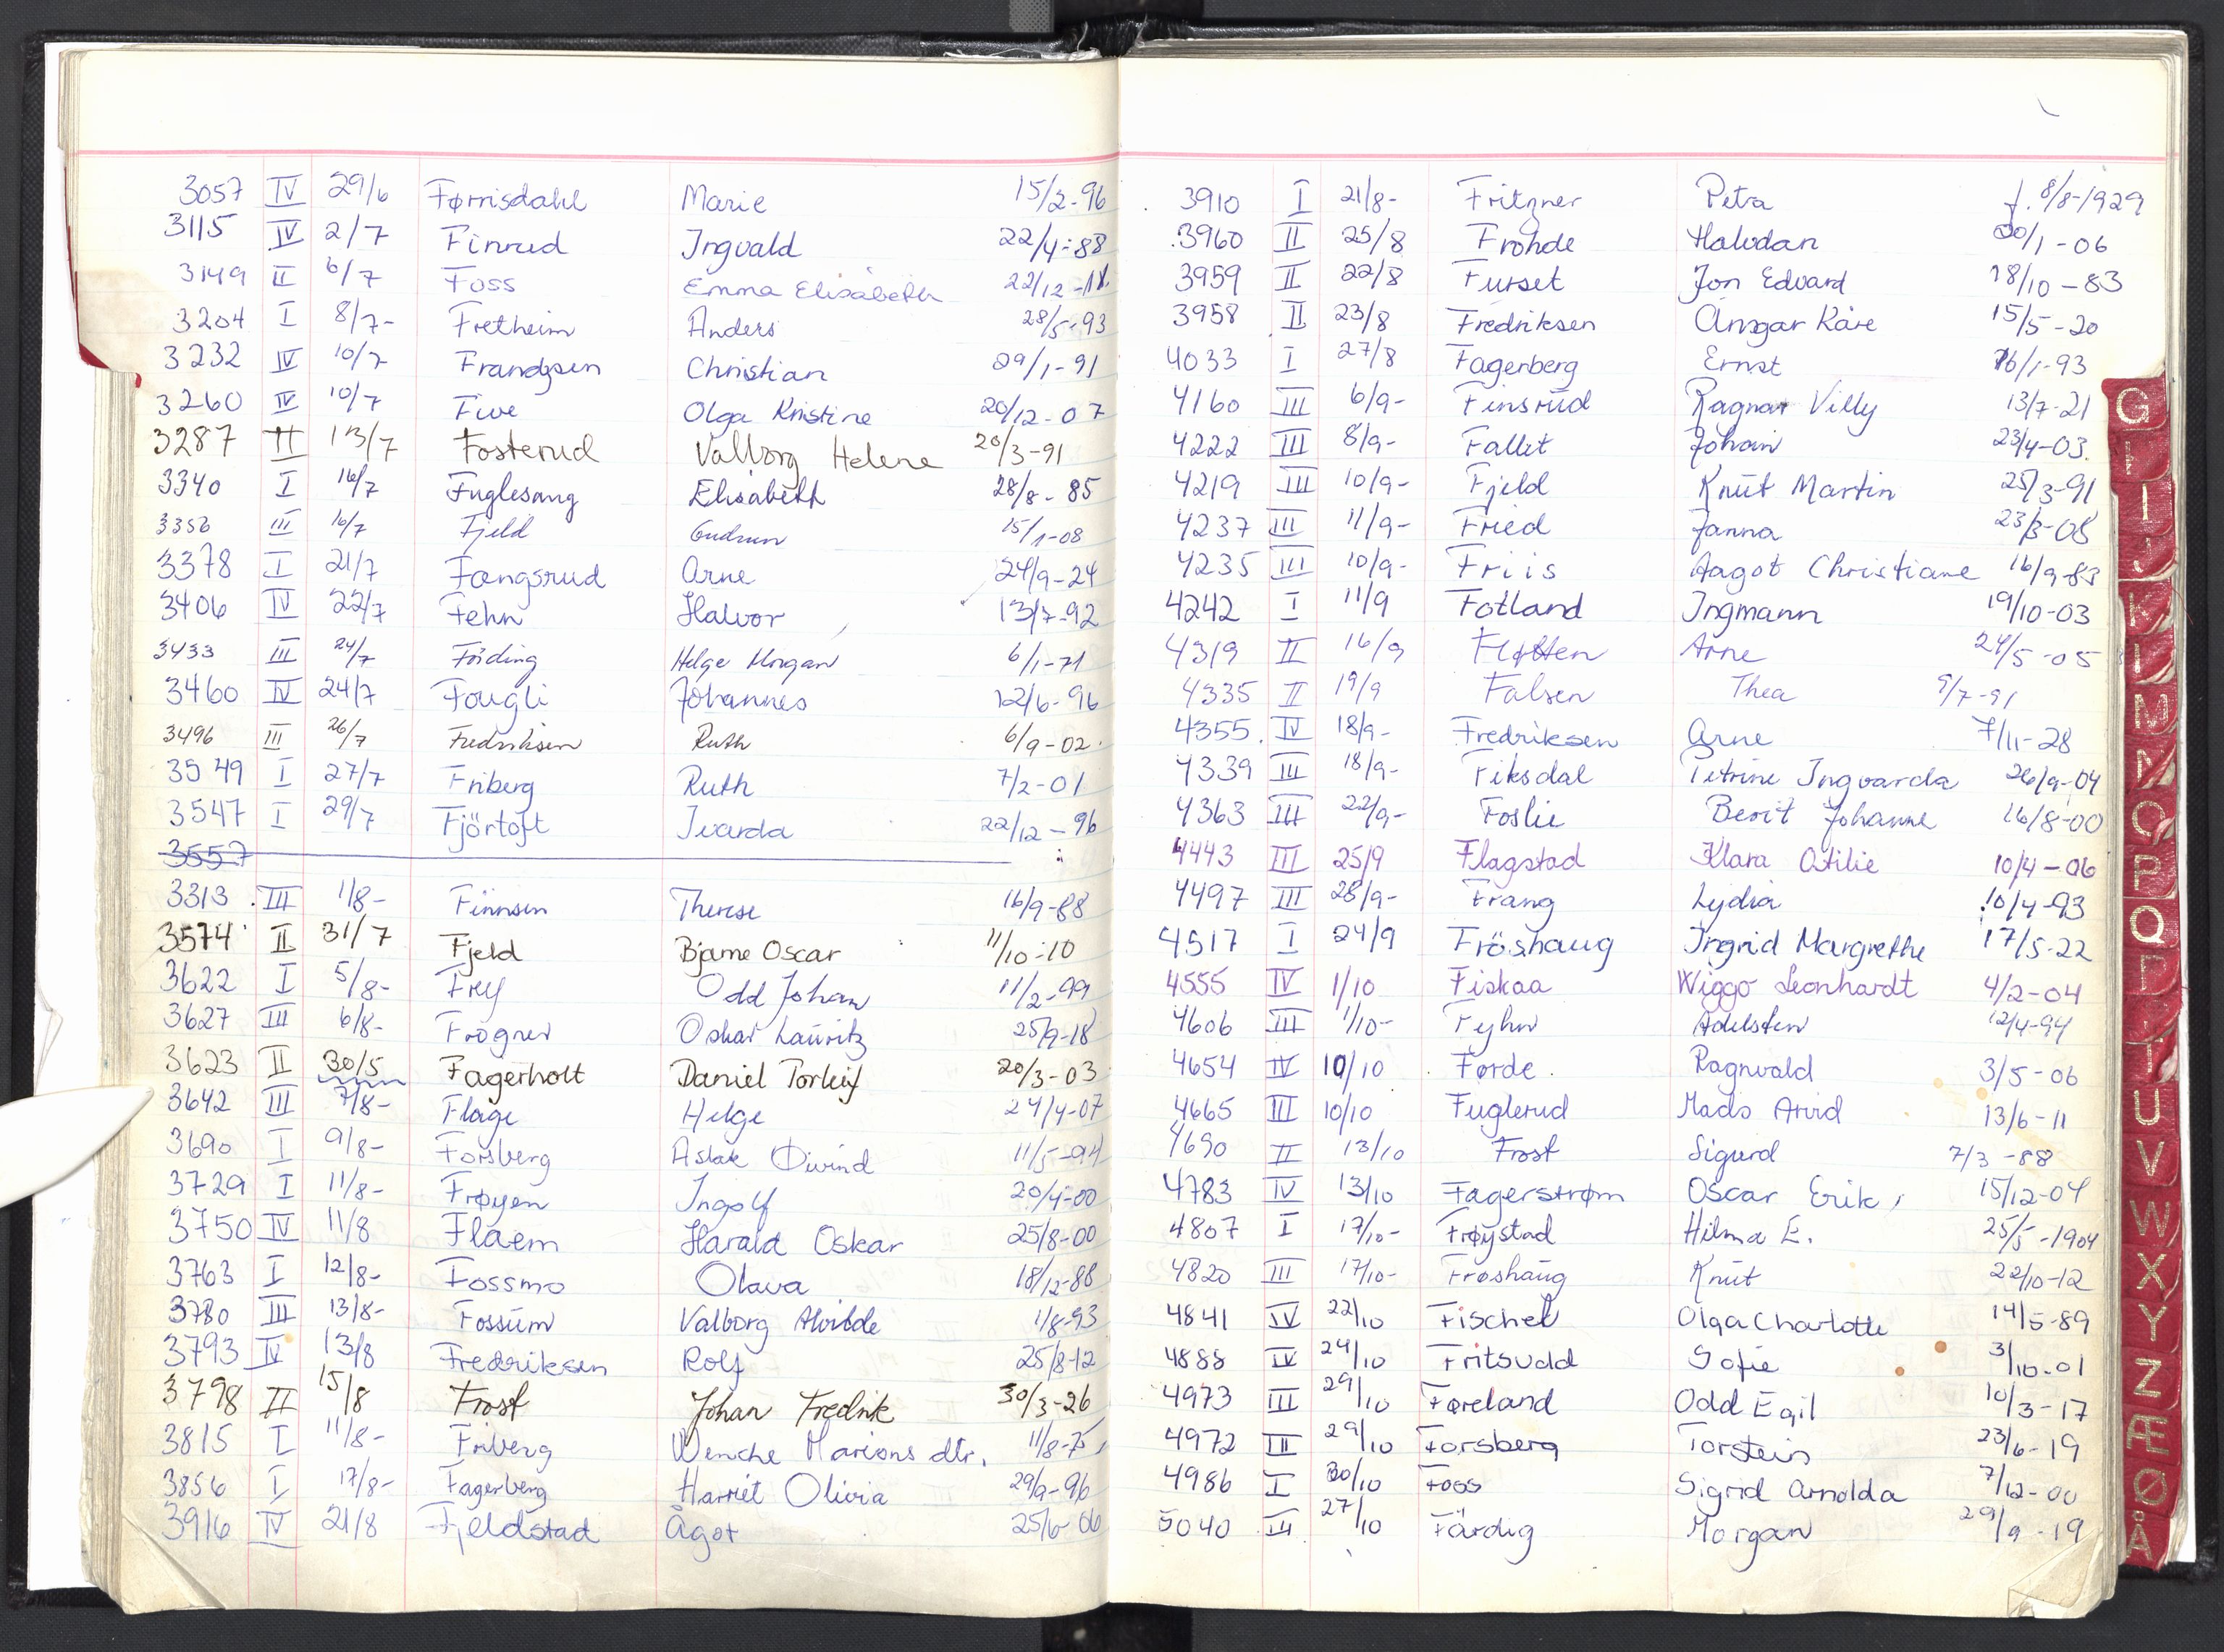 3057 IV 29/6 Førrisdahl Marie 15/2-96
3115 IV 2/7 Finrud Ingvald 22/4-88
3149 II 6/7 Foss Emma Elisabeth 22/12
3204 I 8/7- Fretheim Anders 28/5-93
3232 IV 10/7 Frandzen Christian 29/1-91
3260 IV 10/7 Five Olga Kristine 20/12-07
3287 II 13/7 Fosterud Valborg Helene 20/3-91
3340 I 16/7 Fuglesang Elisabeth 28/8-85
3356 III 16/7 Fjeld Gudrun 15/1-08
3378 I 21/7 Fængsrud Arne 24/9-24
3406 IV 22/7 Fehn Halvor 13/7-92
3433 III 24/7 Förding Helge Morgan 6/1-71
3460 IV 24/7 Fougli Johannes 12/6-96
3496 III 26/7 Fredriksen Ruth 6/9-02.
3549 I 27/7 Friberg Ruth 7/2-01
3547 I 29/7 Fjörtoft Ivarda 22/12-96
3557
3313 III 1/8- Finnsen Therese 16/9-88
3574 II 31/7 Fjeld Bjarne Oscar 11/10-10
3622 I 5/8- Frey Odd Johan 11/2-99
3627 III 6/8- Frogner Oskar Lauritz 25/9-18
3623 II 30/5 Fagerholt Daniel Torleif 20/3-03
3642 III 7/8- Flage Helge 24/4-07
3690 I 9/8- Forsberg Aslak Øivind 11/5-94
3729 I 11/8- Frøyen Ingolf 20/4-00
3750 IV 11/8 Flaem Harald Oskar 25/8-00
3763 I 12/8- Fossmo Olava 18/12-88
3780 III 13/8- Fossum Valborg Alvilde 1/8-93
3793 IV 13/8 Fredriksen Rolf 25/8-12
3798 II 15/8 Frost Johan Fredrik 30/3-26
3815 I 11/8- Friberg Wenche Marions dtr. 11/8-75
3856 I 17/8- Fagerberg Harriet Olivia 29/9-96
3916 IV 21/8 Fjeldstad Ågot 25/6-06
3910 I 21/8- Fritzner Petra f. 8/8-1929
3960 II 25/8 Frohde Halvdan 20/1-06
3959 II 22/8 Furset Jon Edvard 18/10-83
3958 II 23/8 Fredriksen Ansgar Kåre 15/5-20
4033 I 27/8 Fagerberg Ernst 16/1-93
4160 III 6/9- Finsrud Ragnar Villy 13/7-21
4222 III 8/9- Fallet Johan 23/4-03.
4219 III 10/9- Fjeld Knut Martin 25/3-91
4237 III 11/9- Fried Janna 23/3-08
4235 III 10/9- Friis Aagot Christiane 16/9-83
4242 I 11/9 Fotland Ingmann 19/10-03
4319 II 16/9 Fløtten Arne 24/5-05
4335 II 19/9 Falsen Thea 9/7-91
4355. IV 18/9- Fredriksen Arne 7/11-28
4339 III 18/9- Fiksdal Petrine Ingvarda 26/9-04
4363 III 22/9- Foslie Berit Johanne 16/8-00
4443 III 25/9 Flagstad Klara Otilie 10/4-06
4497 III 28/9- Frang Lydia 10/4-93
4517 I 24/9 Fröshaug Ingrid Margrethe 17/5-22
4555 IV 1/10 Fiskaa Wiggo Leonhardt 4/2-04
4606 III 1/10- Fyhn Adelsten 12/4-94
4654 IV 10/10 Førde Ragnvald 3/5-06
4665 III 10/10 Fuglerud Mads Arvid 13/6-11
4690 II 13/10 Frost Sigurd 7/3-88
4783 IV 13/10 Fagerstrøm Oscar Erik 15/12-04
4807 I 17/10- Frøystad Hilma E. 25/5-1904
4820 III 17/10- Frøshaug Knut 22/10-12
4841 IV 22/10 Fischer Olga Charlotte 14/5-89
4888 IV 24/10 Fritsvold Sofie 3/10-01
4973 III 29/10 Føreland Odd Egil 10/3-17
4972 III 29/10 Forsberg Torstein 23/6-19
4986 I 30/10 Foss Sigrid Arnolda 7/12-00
5040 III 27/10 Färdig Morgan 29/9-19
G
I
J
K
L
M
N
O
P
Q
R
T
U
V
W
X
Y
Z
Æ
Ø
Å